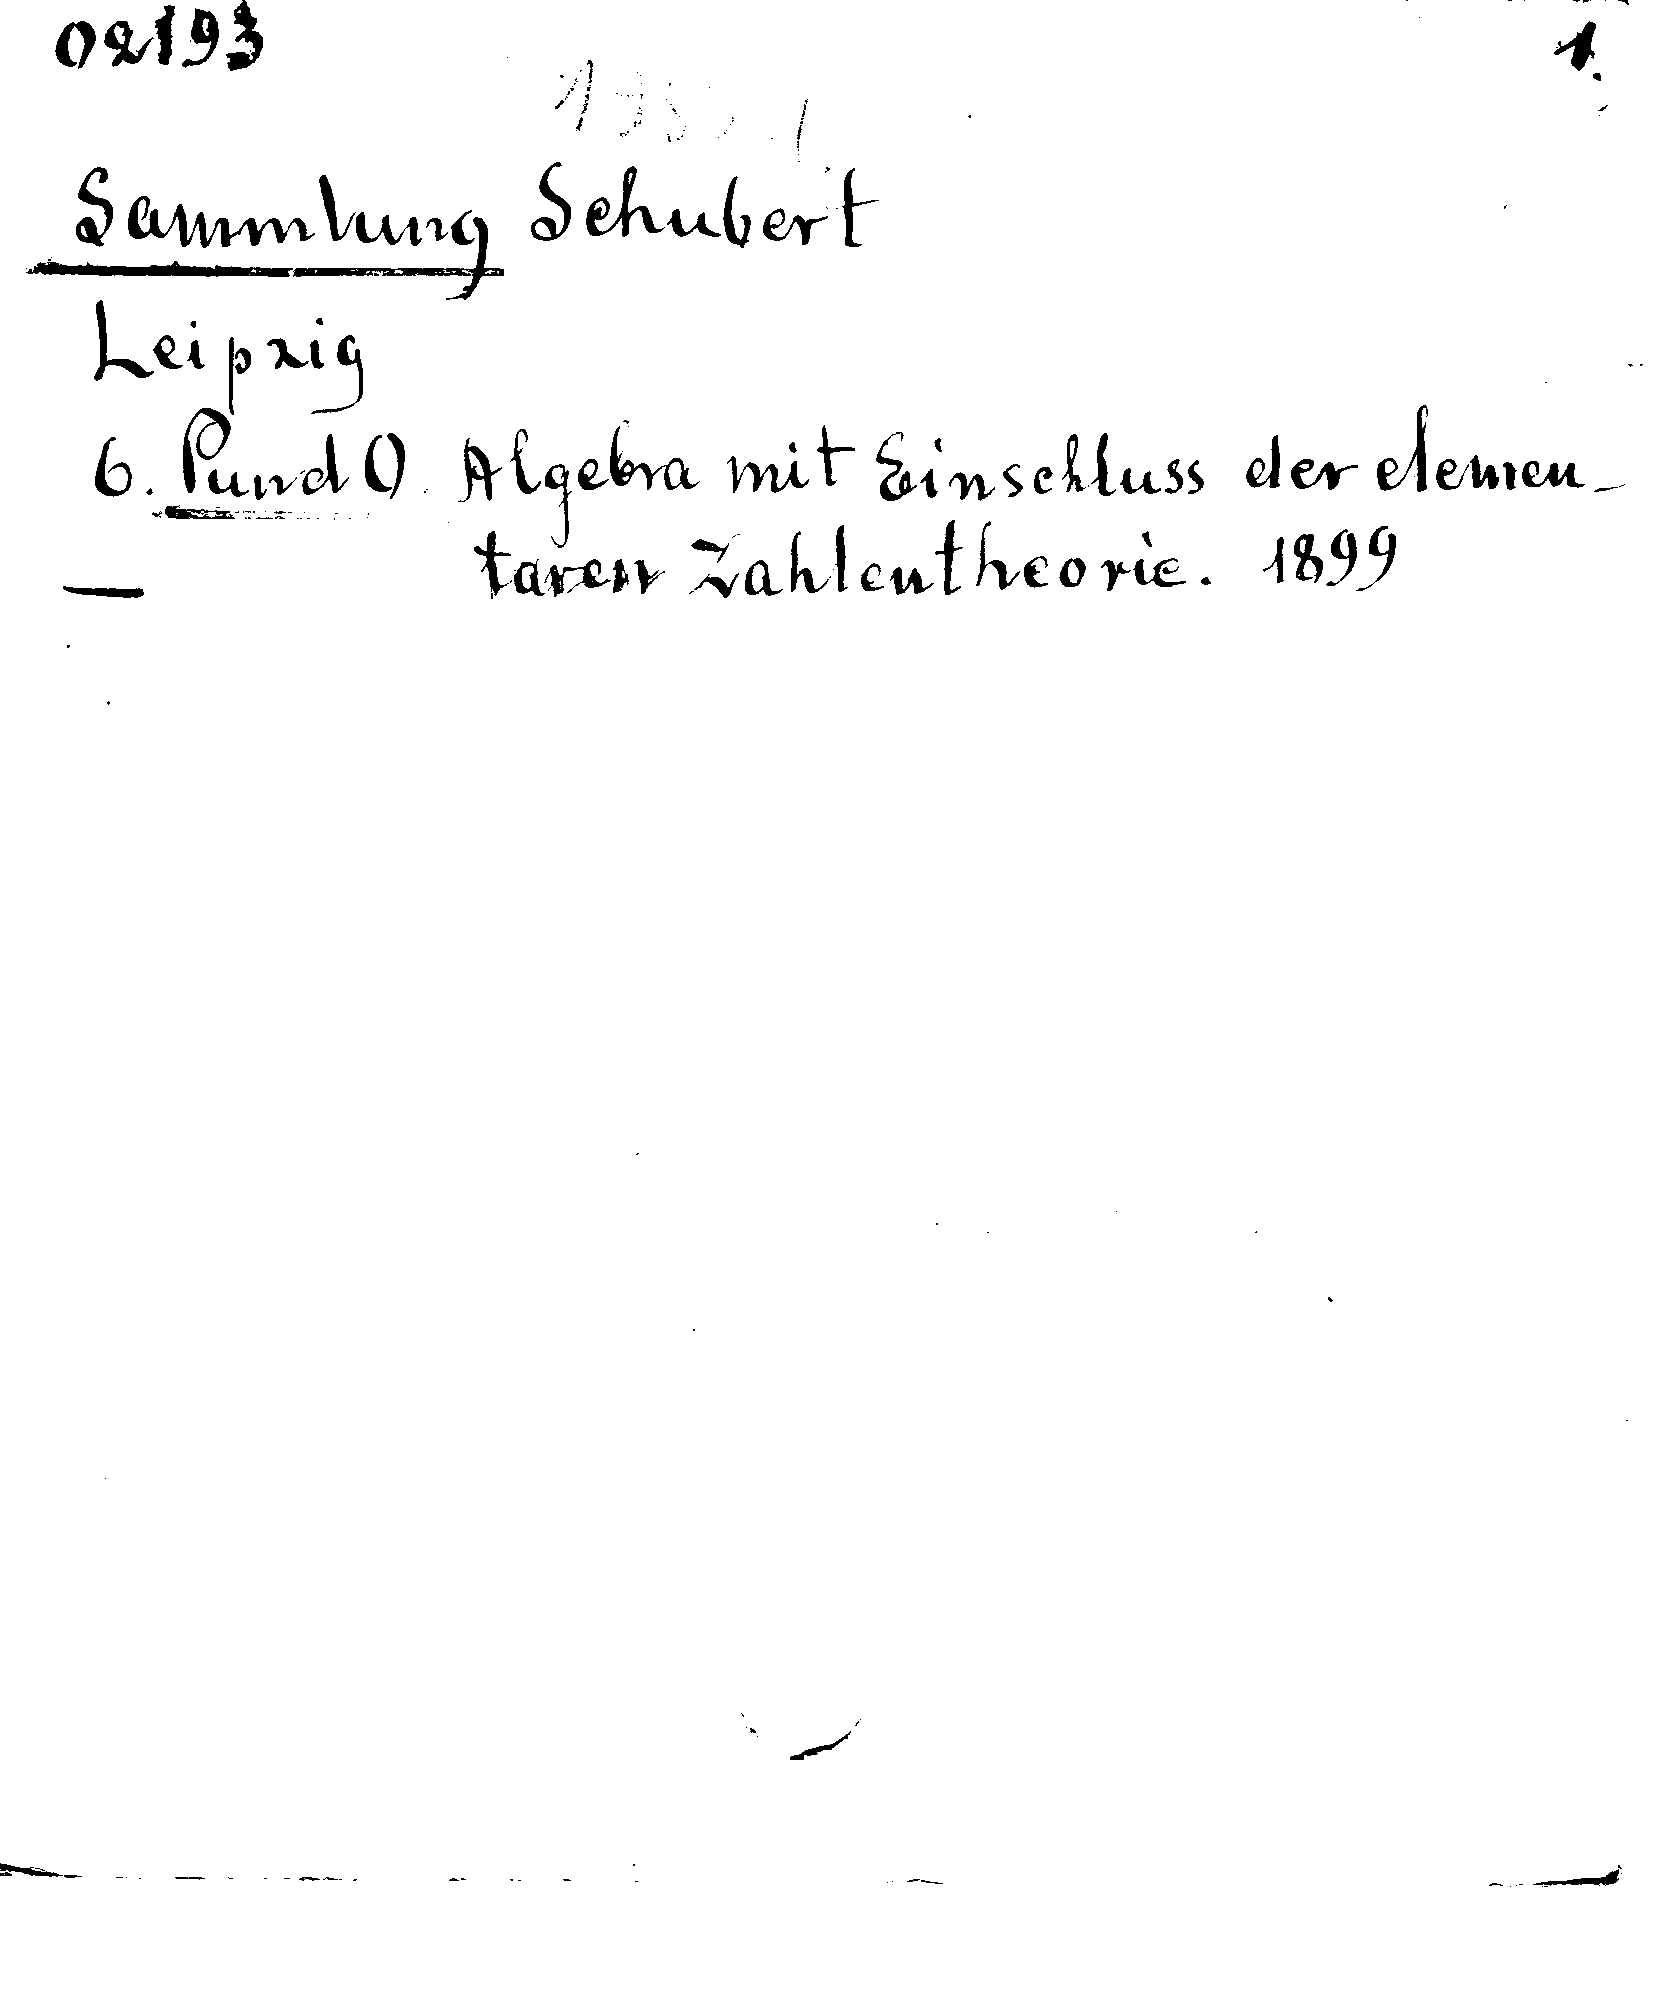 02193 1.
Sammlung Schubert
Leipzig
6. Pund O. Algebra mit Einschluss der elemen-
taren Zahlentheorie. 1899